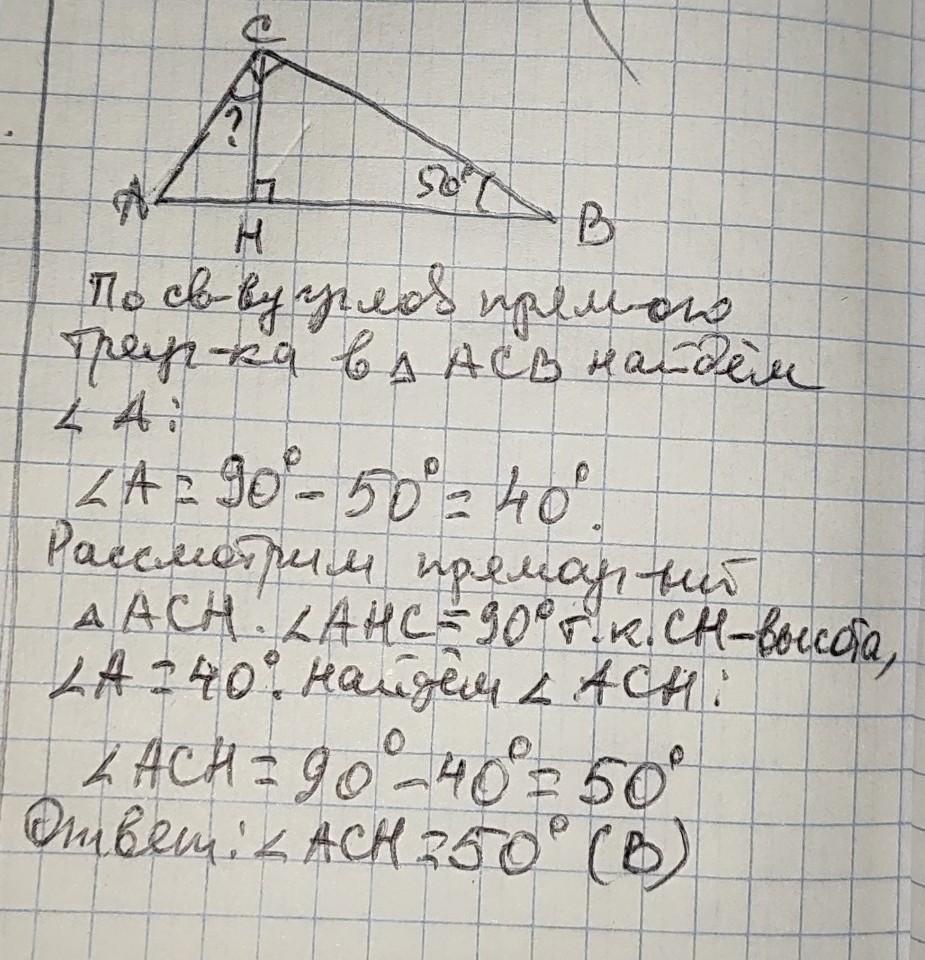 C
?
50°
A
H
B
По св-ву углов прям-ого
треуг-ка в △ ACB найдём
∠ A:
∠A = 90° - 50° = 40°.
Рассмотрим прямоуг-ный
△ ACH. ∠AHC = 90° т.к. CH - высота,
∠A = 40°. Найдём ∠ ACH:
∠ACH = 90° - 40° = 50°
Ответ: ∠ACH = 50° (В)